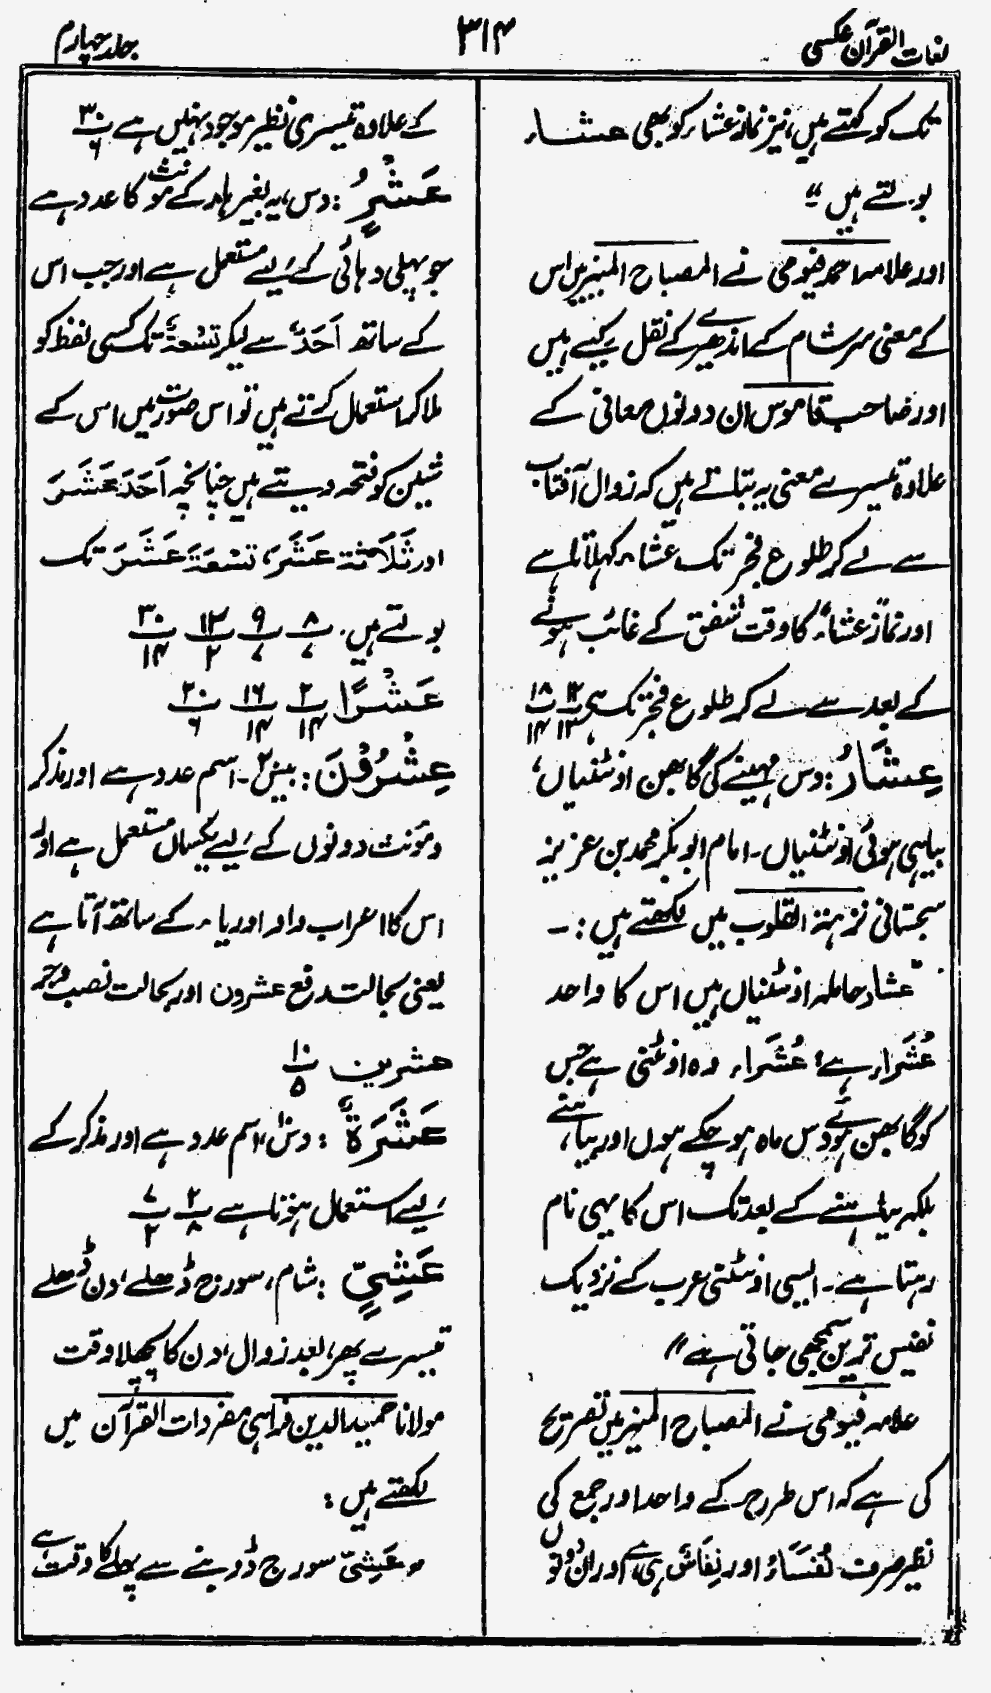 لغات القرآن عکسی
۳۱۴
جلد چہارم
تک کو کہتے ہیں، نیز نماز عشاء کو بھی عشاء
بولتے ہیں"
اور علامہ احمد فیومی نے المصباح المنیر میں اس
کے معنی سر شام کے اندھیرے کے نقل کیے ہیں
اور صاحب قاموس ان دونوں معانی کے
علاوہ تیسرے معنی یہ بتلاتے ہیں کہ زوال آفتاب
سے لے کر طلوع فجر تک عشاء کہلاتا ہے
اور نماز عشاء کا وقت شفق کے غائب ہونے
کے بعد سے لے کر طلوع فجر تک ہے ۱۲/۱۳ ۱۸/۱۴
عِشَارُ: دس مہینے کی گابھن اونٹنیاں،
بیاہی ہوئی اونٹنیاں۔ امام ابوبکر محمد بن عزیز
سجستانی نزہۃ القلوب میں لکھتے ہیں :۔
"عشار حاملہ اونٹنیاں ہیں اس کا واحد
عُشَراء ہے، عُشَراء وہ اونٹنی ہے جس
کو گابھن ہوئے دس ماہ ہو چکے ہوں اور بیاہنے،
بلکہ بیاہنے کے بعد تک اس کا یہی نام
رہتا ہے۔ ایسی اونٹنی عرب کے نزدیک
نفیس ترین سمجھی جاتی ہے"
علامہ فیومی نے المصباح المنیر میں تصریح
کی ہے کہ اس طرح کے واحد اور جمع کی
نظیر صرف نُفَسَاءُ اور نِفَاسٌ ہی ہے اور ان دونوں
کے علاوہ تیسری نظیر موجود نہیں ہے ۳۰/۶
عَشْرٌ: دس، یہ بغیر ہاء کے مونث کا عدد ہے
جو پہلی دہائی کے لیے مستعمل ہے اور جب اس
کے ساتھ اَحَدٌ سے لیکر تسْعۃٌ تک کسی لفظ کو
ملا کر استعمال کرتے ہیں تو اس صورت میں اس کے
شین کو فتحہ دیتے ہیں چنانچہ اَحَدَ عَشَرَ
اور ثَلَاثۃ عَشَرَ، تسْعَۃَ عَشَرَ تک
بولتے ہیں. ۸/۷ ۹/۷ ۱۲/۲ ۳۰/۱۴
عَشْرًا ۲/۱۴ ۱۶/۱۴ ۲۰/۶
عِشْرُوْنَ: بیس۔ اسم عدد ہے اور مذکر
و مؤنث دونوں کے لیے یکساں مستعمل ہے اور
اس کا اعراب واو اور یاء کے ساتھ آتا ہے
یعنی بحالت رفع عشرون اور بحالت نصب و جر
عشرین ۱۰/۵
عَشَرَۃٌ: دس، اسم عدد ہے اور مذکر کے
لیے استعمال ہوتا ہے ۲/۸ ۷/۲
عَشِیٍّ: شام، سورج ڈھلے، دن ڈھلے
تیسرے پہر، بعد زوال، دن کا پچھلا وقت
مولانا حمید الدین فراہی مفردات القرآن میں
لکھتے ہیں :
"عَشِیّ سورج ڈوبنے سے پہلے کا وقت ہے